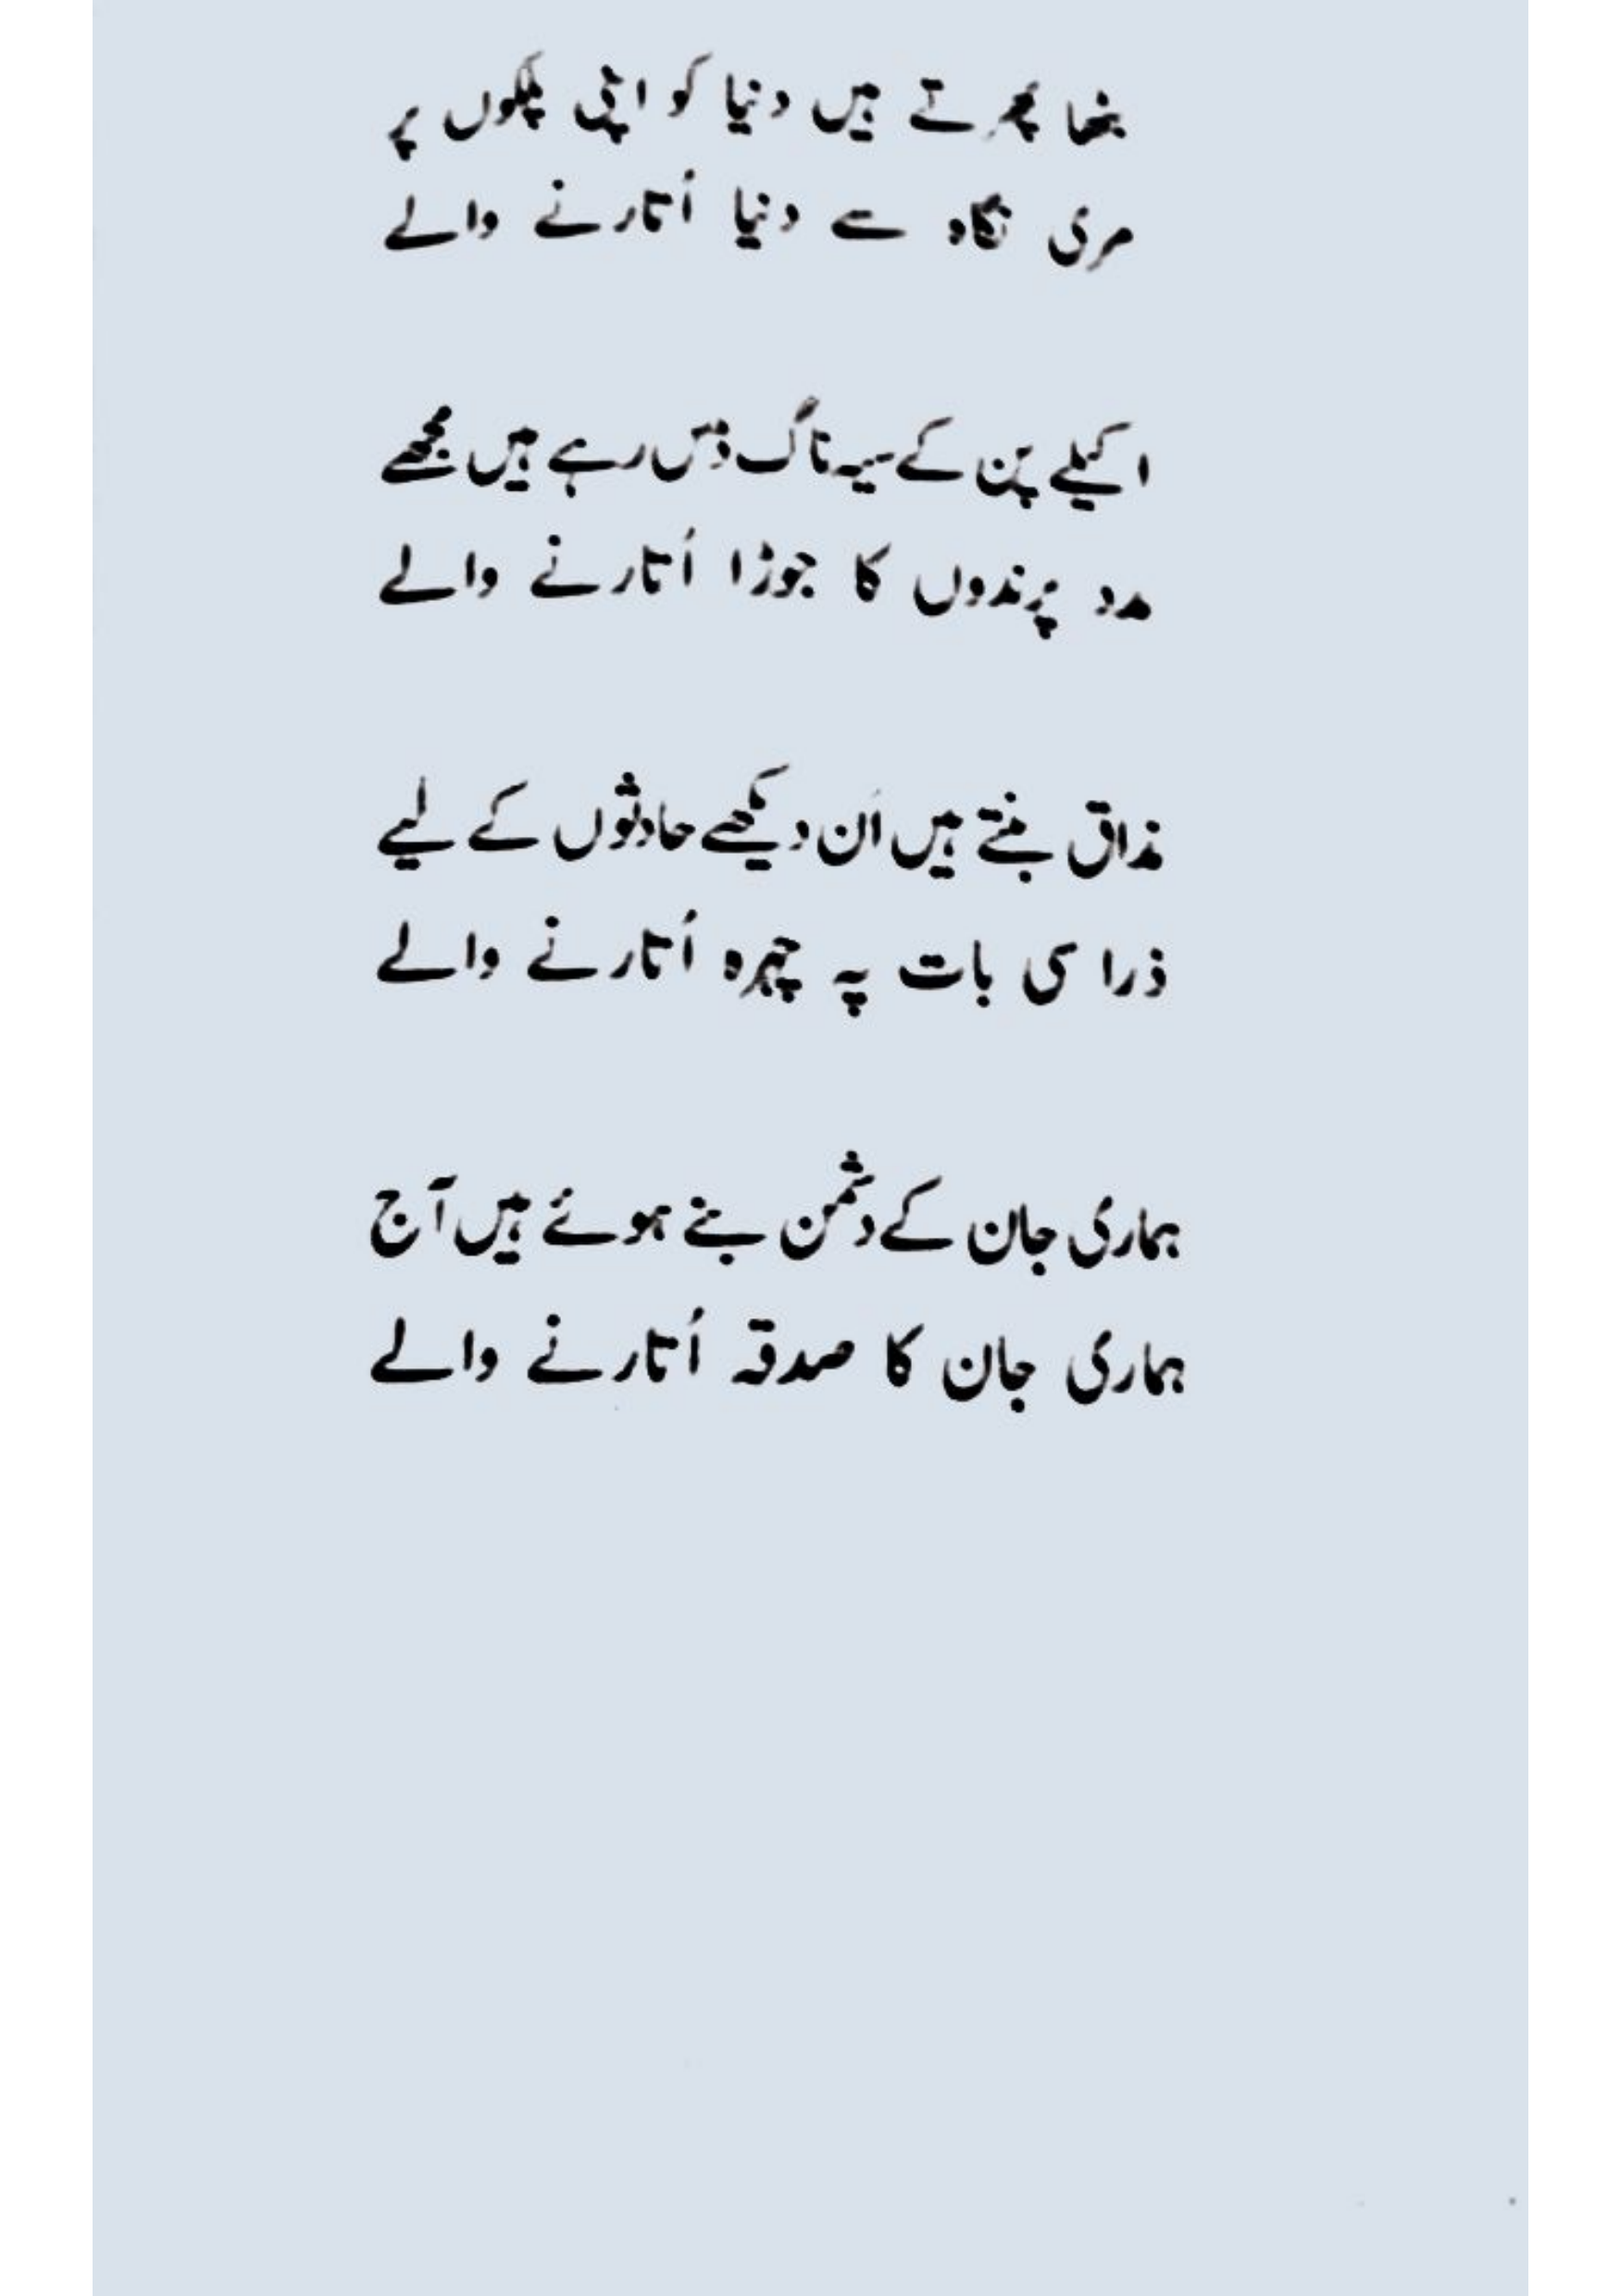 بٹھا پھرتے ہیں دنیا کو اپنی پلکوں پر
مری نگاہ سے دنیا اُتارنے والے
اکیلے پن کے سیہ ناگ ڈس رہے ہیں مجھے
مدد پرندوں کا جوڑا اُتارنے والے
مذاق بنتے ہیں اَن دیکھے حادثوں کے لیے
ذرا سی بات پہ چہرہ اُتارنے والے
ہماری جان کے دشمن بنے ہوئے ہیں آج
ہماری جان کا صدقہ اُتارنے والے